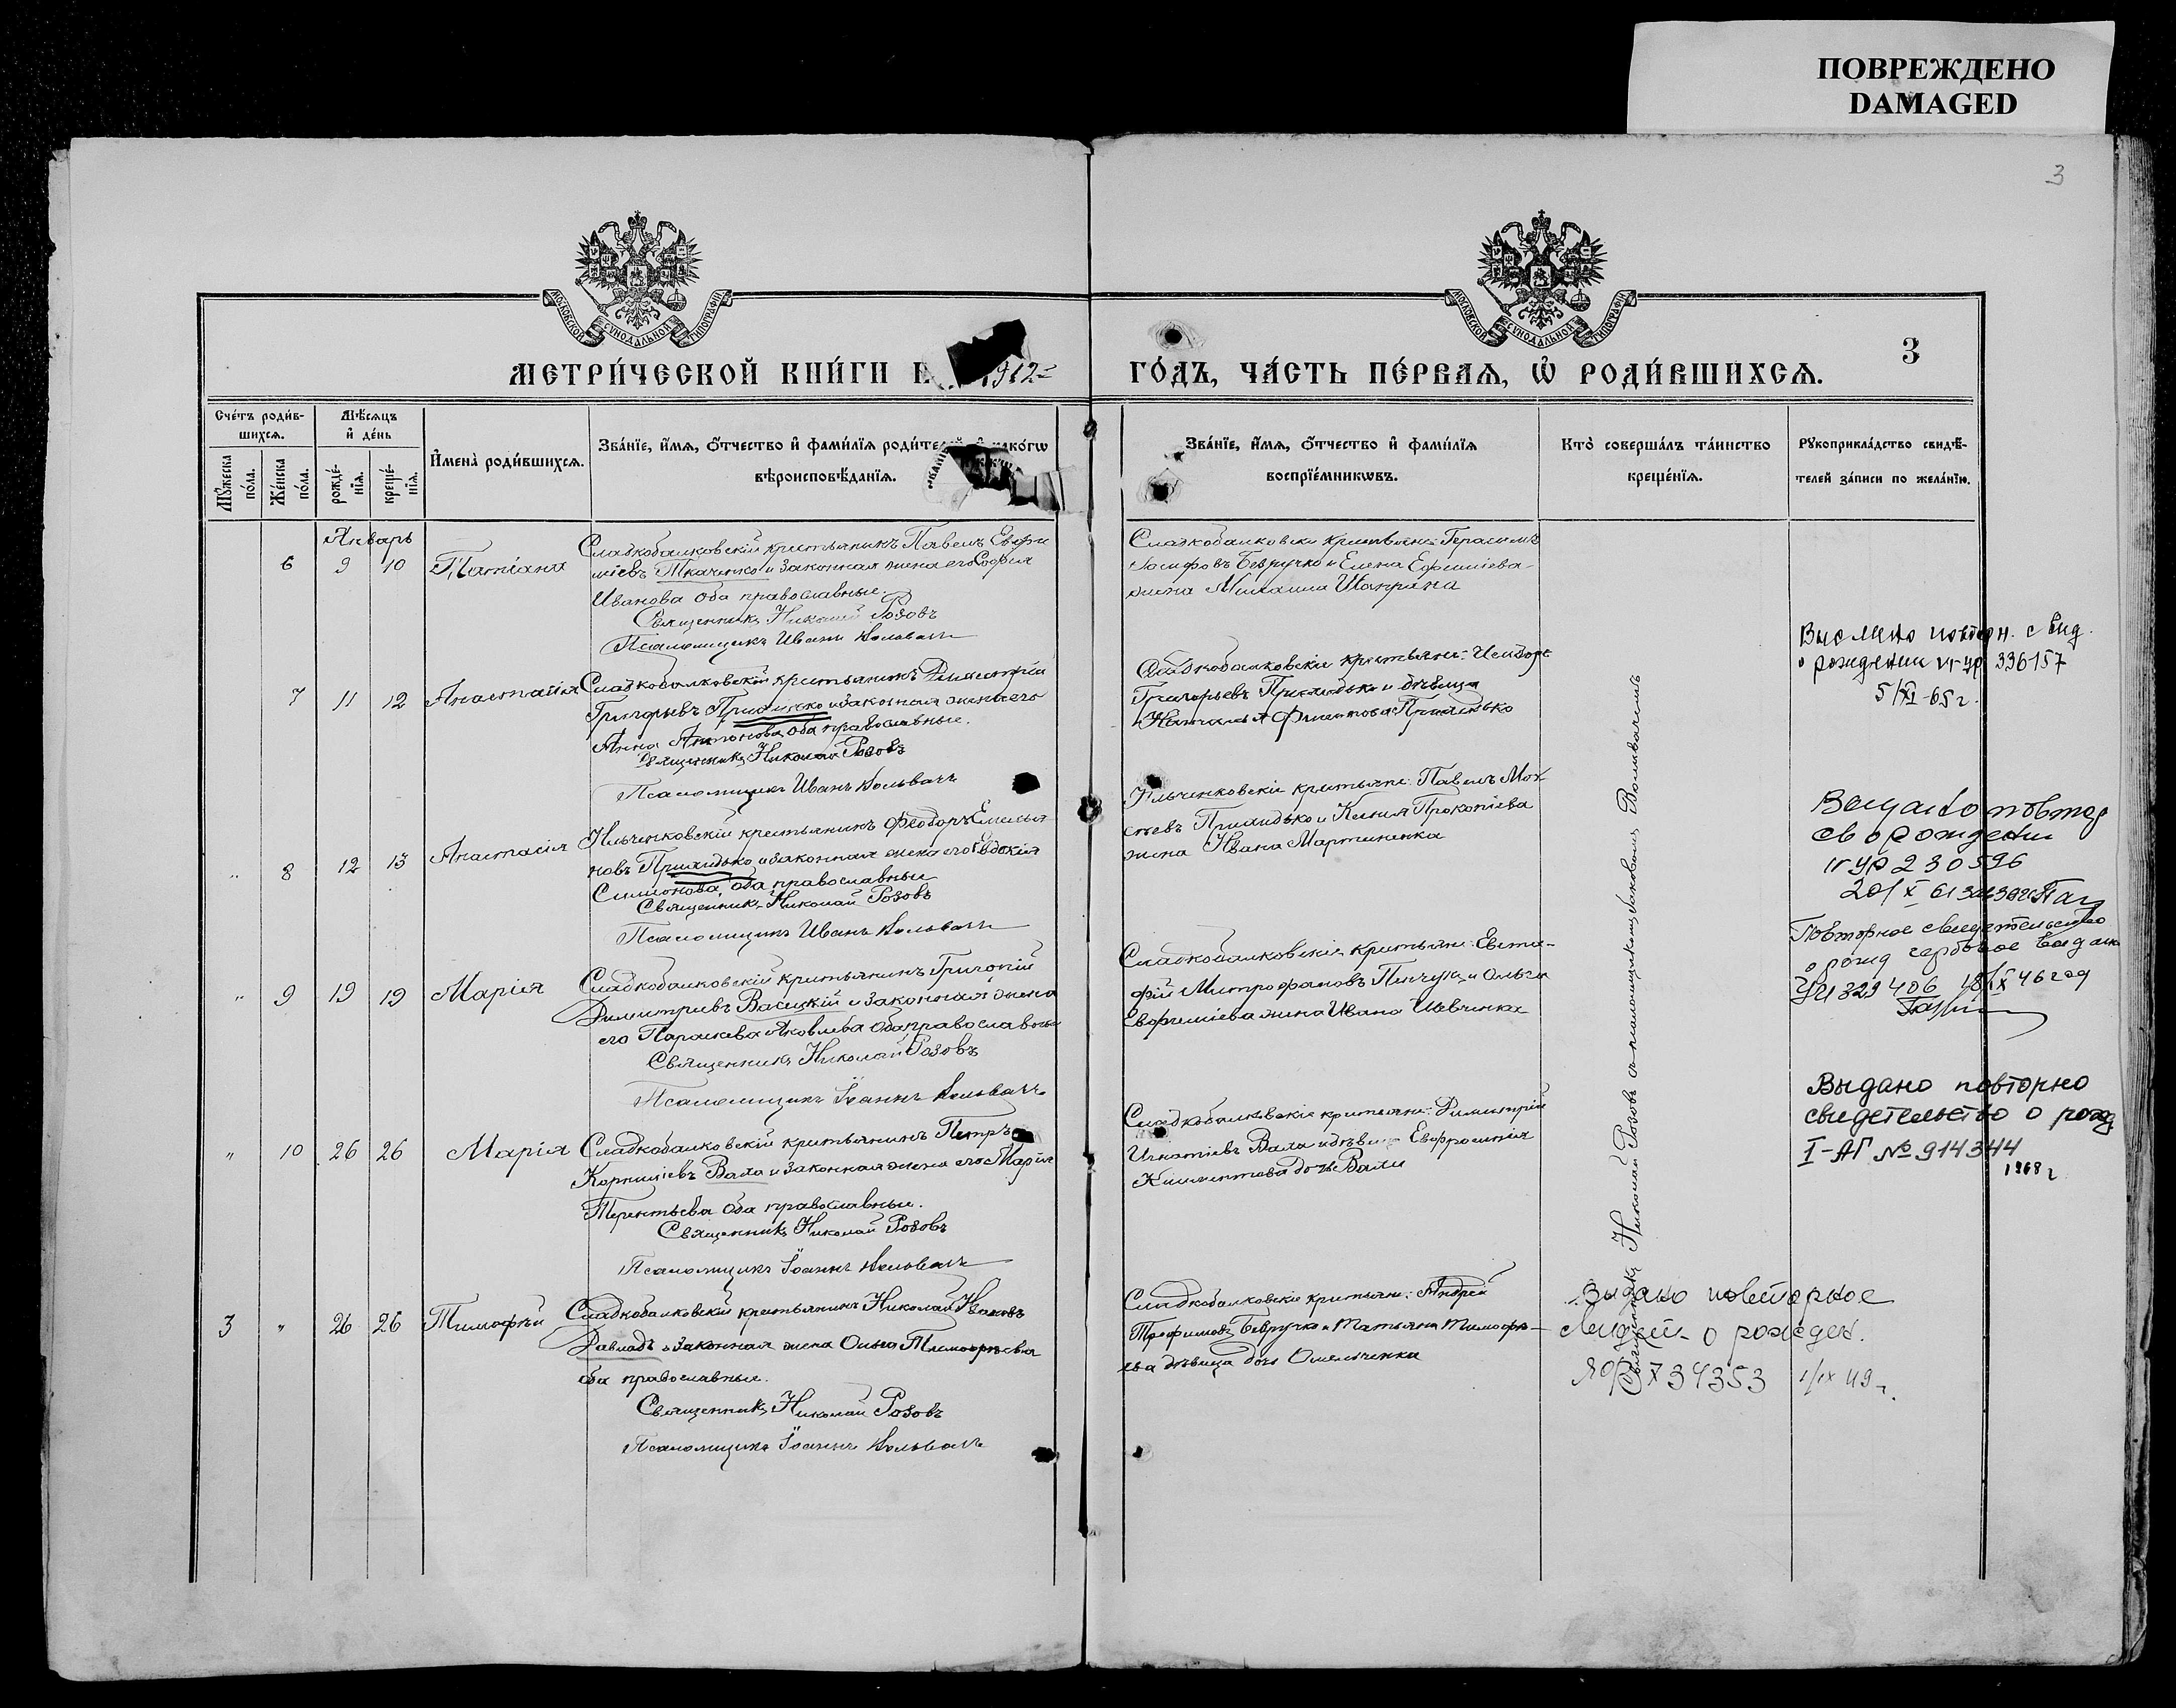 ПОВРЕЖДЕНО
DAMAGED
3
МОСКОВСКОЙ СѴНОДАЛЬНОЙ ТИПОГРАФІИ
МОСКОВСКОЙ СѴНОДАЛЬНОЙ ТИПОГРАФІИ
МЕТРИ́ЧЕСКОЙ КНИ́ГИ 1912 ГО́ДЪ, ЧА́СТЬ ПЕ́РВАЯ, Ѡ РОДИ́ВШИХСЯ.
3
Сче́тъ роди́в-
шихся.
Му́жеска по́ла.
Же́нска по́ла.
Мѣ́сяцъ
и де́нь
рожде́-нія.
креще́-нія.
Имена̀ роди́вшихся.
Зва́ніе, и́мя, о́тчество и фами́лія роди́телей, и како́гѡ
вѣроисповѣ́данія.
Зва́ніе, и́мя, о́тчество и фами́лія
воспріе́мникѡвъ.
Кто̀ соверша́лъ та́инство
креще́нія.
Рукоприкла́дство свидѣ́-
телей за́писи по жела́нію.
Январь
6 9 10 Татіана
Сладкобалковскій крестьянинъ Павелъ Евфи
міевъ Ткаченко и законная жена его Софія
Иванова оба православные.
Священникъ Николай Розовъ
Псаломщикъ Иванъ
Сладкобалковскіе крестьяне: Герасимъ
Іосифовъ Безручко и Елена Ефиміева
жена Михаила
7 11 12 Анастасія
Сладкобалковскій крестьянинъ Димитрій
Григорьевъ Приходько и законная жена его
Анна Антонова, оба православные.
Священникъ Николай Розовъ
Псаломщикъ Иванъ
Сладкобалковскіе крестьяне: Исидоръ
Григорьевъ Приходько и дѣвица
Наталья Филиппова Приходько
повторн. свид.
о рождении 336157
5/XI-65 г.
" 8 12 13 Анастасія
Ильченковскій крестьянинъ Ѳеодоръ Емелья
новъ Приходько и законная жена его Евдокія
Симионова, оба православные
Священникъ Николай Розовъ
Псаломщикъ Иванъ
Ильченковскіе крестьяне: Павелъ
Приходько и Ксенія Прокопіева
жена Ивана Мартыненка
Выдано повтор
св о рождении
230596
" 9 19 19 Марія
Сладкобалковскій крестьянинъ Григорій
Димитріевъ Васицкій и законная жена
его Параскева Яковлева оба православные
Священникъ Николай Розовъ
Псаломщикъ Іоаннъ
Сладкобалковскіе крестьяне: Евста-
фій Митрофановъ Пинчукъ и Ольга
Евфиміева жена Ивана Шевченка
Повторное свидетельство
о рожд гербовое выдано
329406 18/IX 46 год
" 10 26 26 Марія
Сладкобалковскій крестьянинъ Петръ
Корниліевъ Вала и законная жена его Марія
Терентьева оба православные.
Священникъ Николай Розовъ
Псаломщикъ Іоаннъ
Сладкобалковскіе крестьяне: Димитрій
Игнатіевъ Вала и дѣвица Евфросинія
Климентова дочь Вали
Выдано повторно
свидетельство о рожд
I-АГ № 914344
1968 г
3 " 26 26 Тимофѣй
Сладкобалковскій крестьянинъ Николай Ивановъ
и законная жена Ольга Тимофѣева
оба православные.
Священникъ Николай Розовъ
Псаломщикъ Іоаннъ
Сладкобалковскіе крестьяне: Андрей
Трофимовъ Безручко и Татьяна Тимофѣ-
ева дѣвица дочь Омельченка
Выдано повторное
свидет- о рожден.
34353 1/IX 49 г.
Священникъ Николай Розовъ съ псаломщикомъ